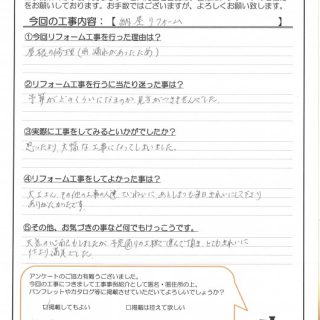 をお願いしております。お手数ではございますが、よろしくお願い致します。
今回の工事内容:【 納屋リフォーム 】
①今回リフォーム工事を行った理由は?
屋根の修理(雨漏れがあったため)
②リフォーム工事を行うに当たり迷った事は?
予算がどのくらいになるのか、見当がつきませんでした。
③実際に工事をしてみるといかがでしたか?
思ったより大幅な工事になってしまいました。
④リフォーム工事をしてよかった事は?
大工さん、その他の工事の人達、ていねいに、あとしまつも毎日きれいにして下さり
ありがたかったです。
⑤その他、お気づきの事など何でもけっこうです。
天気の心配もしましたが、予定通りの工程で進んで頂き、とてもきれいに
仕上り満足でした。
アンケートのご協力有難うございました。
今回の工事につきまして工事事例紹介として匿名・居住所の上、
パンフレットやカタログ等に掲載させていただいてよろしいでしょうか?
☑掲載してもよい □掲載は控えて欲しい